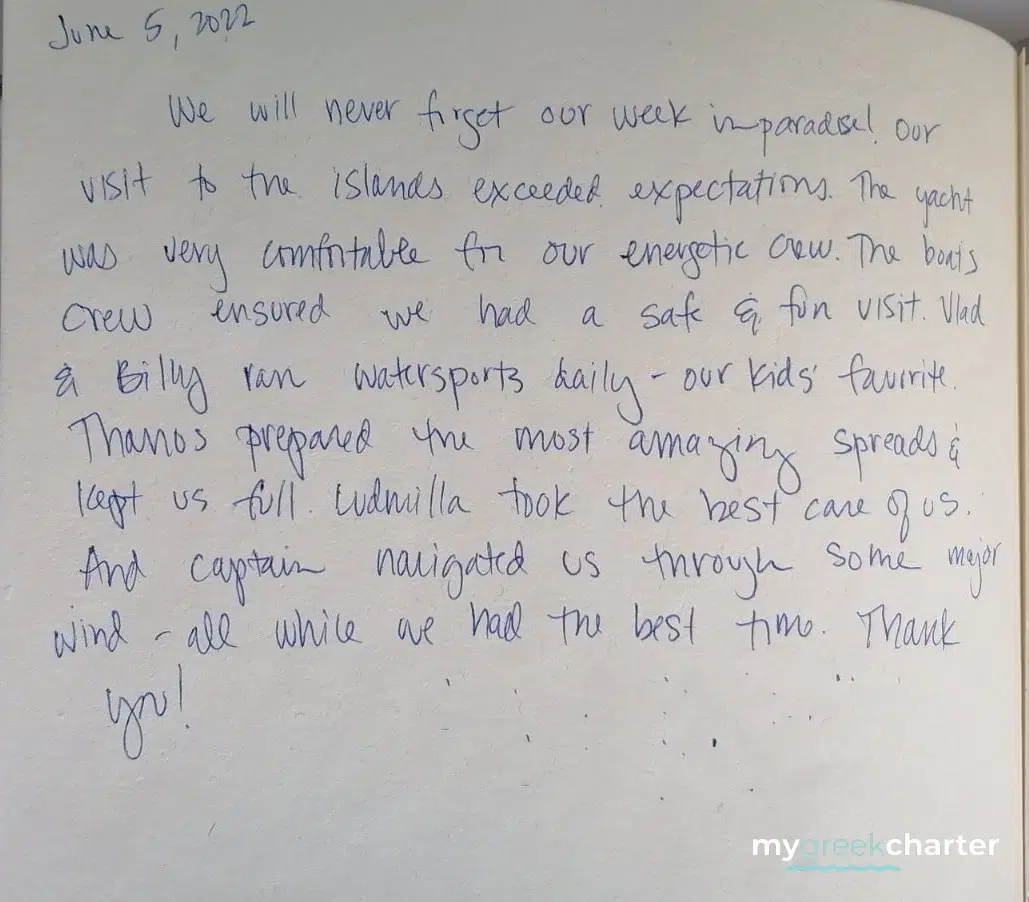 June 5, 2022
We will never forget our week in paradise! Our
visit to the islands exceeded expectations. The yacht
was very comfortable for our energetic crew. The boats
crew ensured we had a safe & fun visit. Vlad
& Billy ran watersports daily - our kids' favorite.
Thanos prepared the most amazing spreads &
kept us full. Ludmilla took the best care of us.
And captain navigated us through some major
wind - all while we had the best time. Thank
you!
mygreekcharter